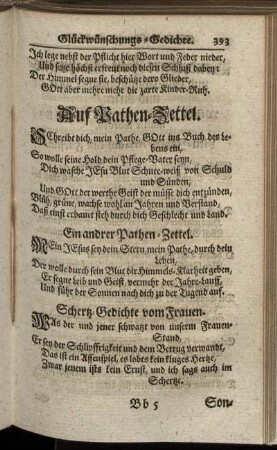 Glückwünschungs-Gedichte. 393
Ich lege nebst der Pflicht hier Wort und Feder nieder,
Und setze höchst erfreut noch diesen Schluß dabey:
Der Himmel segne sie, beschütze dero Glieder,
GOtt aber mehre mehr die zarte Kinder-Ruh.
Auf Pathen-Zettel.
SChreibt dich, mein Pathe, GOtt ins Buch des Le-
bens ein,
So wolle seine Hold dein Pflege-Vater seyn,
Dich wasche JEsu Blut Schnee-weiß von Schuld
und Sünden,
Und GOtt der werthe Geist der müsse dich entzünden,
Blüh, grüne, wachs wohl an Jahren und Verstand,
Daß einst erbauet steh durch dich Geschlecht und Land.
Ein andrer Pathen-Zettel.
MEin JEsus sey dein Stern, mein Pathe, durch dein
Leben,
Der wolle durch sein Blut dir Himmels-Klarheit geben,
Er segne Leib und Geist, vermehr der Jahre-Lauff,
Und führ der Sonnen nach dich zu der Tugend auf.
Schertz-Gedichte vom Frauen-
WAs der und jener schwatzt von unserm Frauen-
Stand,
Er sey der Schlipffrigkeit und dem Betrug verwandt,
Das ist ein Affenspiel, es lobts kein kluges Hertze,
Zwar jenem ists kein Ernst, und ich sags auch im
Schertze.
Bb 5 Son-